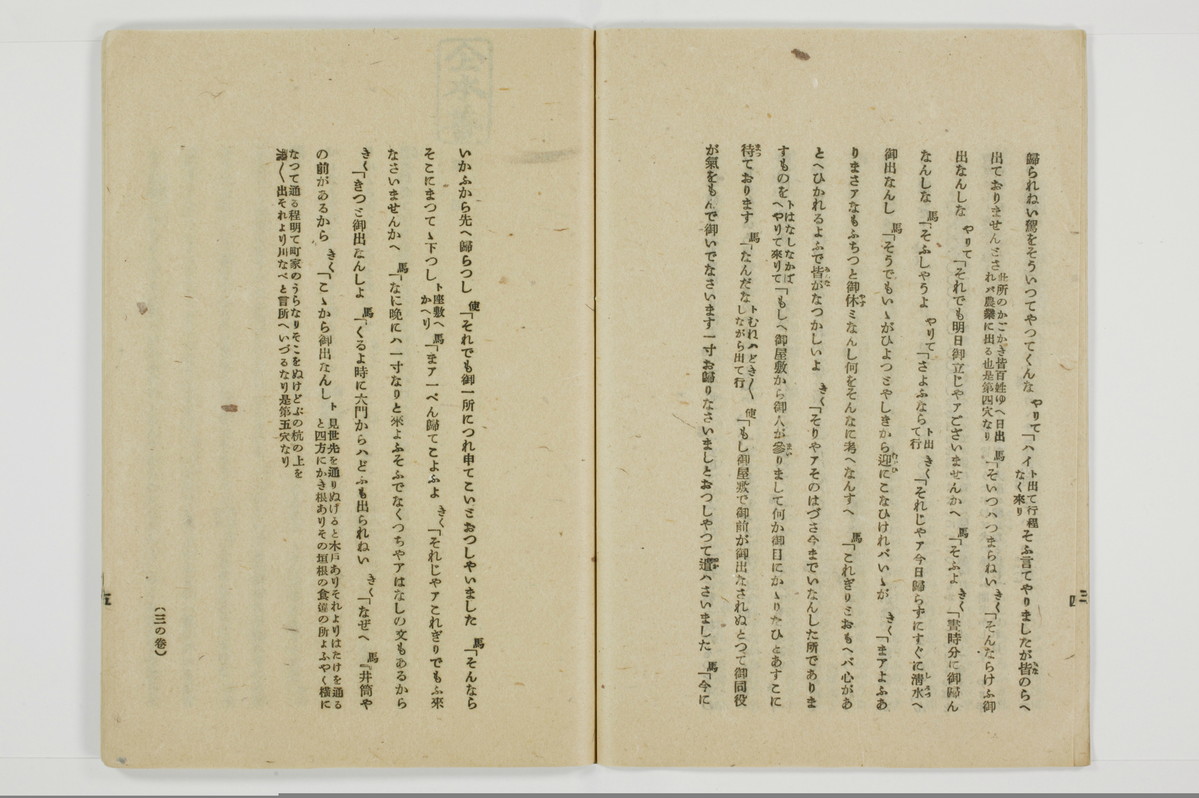 歸られねい駕をそういつてやつてくんな やりて「ハイト出て行程なく來りそふ言てやりましたが皆のらへ
出ておりませんとさ此所のかごかき皆百姓ゆへ日出れバ農業に出る也是第四穴なり 馬「そいつハつまらねい きく「そんたらけふ御
出なんしな やりて「それでも明日御立じやアございませんかへ 馬「そふよ きく「晝時分に御歸ん
なんしな 馬「そふしやうよ やりて「さよふならト出て行 きく「それじやア今日歸らずにすぐに清水へ
御出なんし 馬「そうでもいゝがひよつとやしきから迎にこなひけれバいゝが きく「まアよふあ
りまさアなもふちつと御休ミなんし何をそんなに考へなんすへ 馬「これぎりとおもへバ心があ
とへひかれるよふで皆がなつかしいよ きく「そりやアそのはづさ今までいなんした所でありま
すものをトはなしなかばへやりて來りて「もしへ御屋敷から御人が參りまして何か御目にかゝりたひとあすこに
待ております 馬「なんだなトむねハどき〱しながら出て行 使「もし御屋敷で御前が御出なされぬとつて御同役
が氣をもんで御いでなさいます一寸お歸りなさいましとおつしやつて遣ハさいました 馬「今に
いかふから先へ歸らつし 使「それでも御一所につれ申てこいとおつしやいました 馬「そんなら
そこにまつてゝ下つしト座敷へかへり 馬「まア一ぺん歸てこよふよ きく「それじやアこれぎりでもふ來
なさいませんかへ 馬「なに晩にハ一寸なりと來よふそふでなくつちやアはなしの文もあるから
きく「きつと御出なんしよ 馬「くるよ時に大門からハどふも出られねい きく「なぜへ 馬「井筒や
の前があるから きく「こゝから御出なんしト見世先を通りぬけると木戸ありそれよりはたけを通ると四方にかき根ありその垣根の食違の所よふやく横に
なつて通る程明て町家のうらなりそこをぬけどぶの杭の上を〱出それより川なべと言所へいづるなり是第五穴なり
(三の巻)
三
四
五